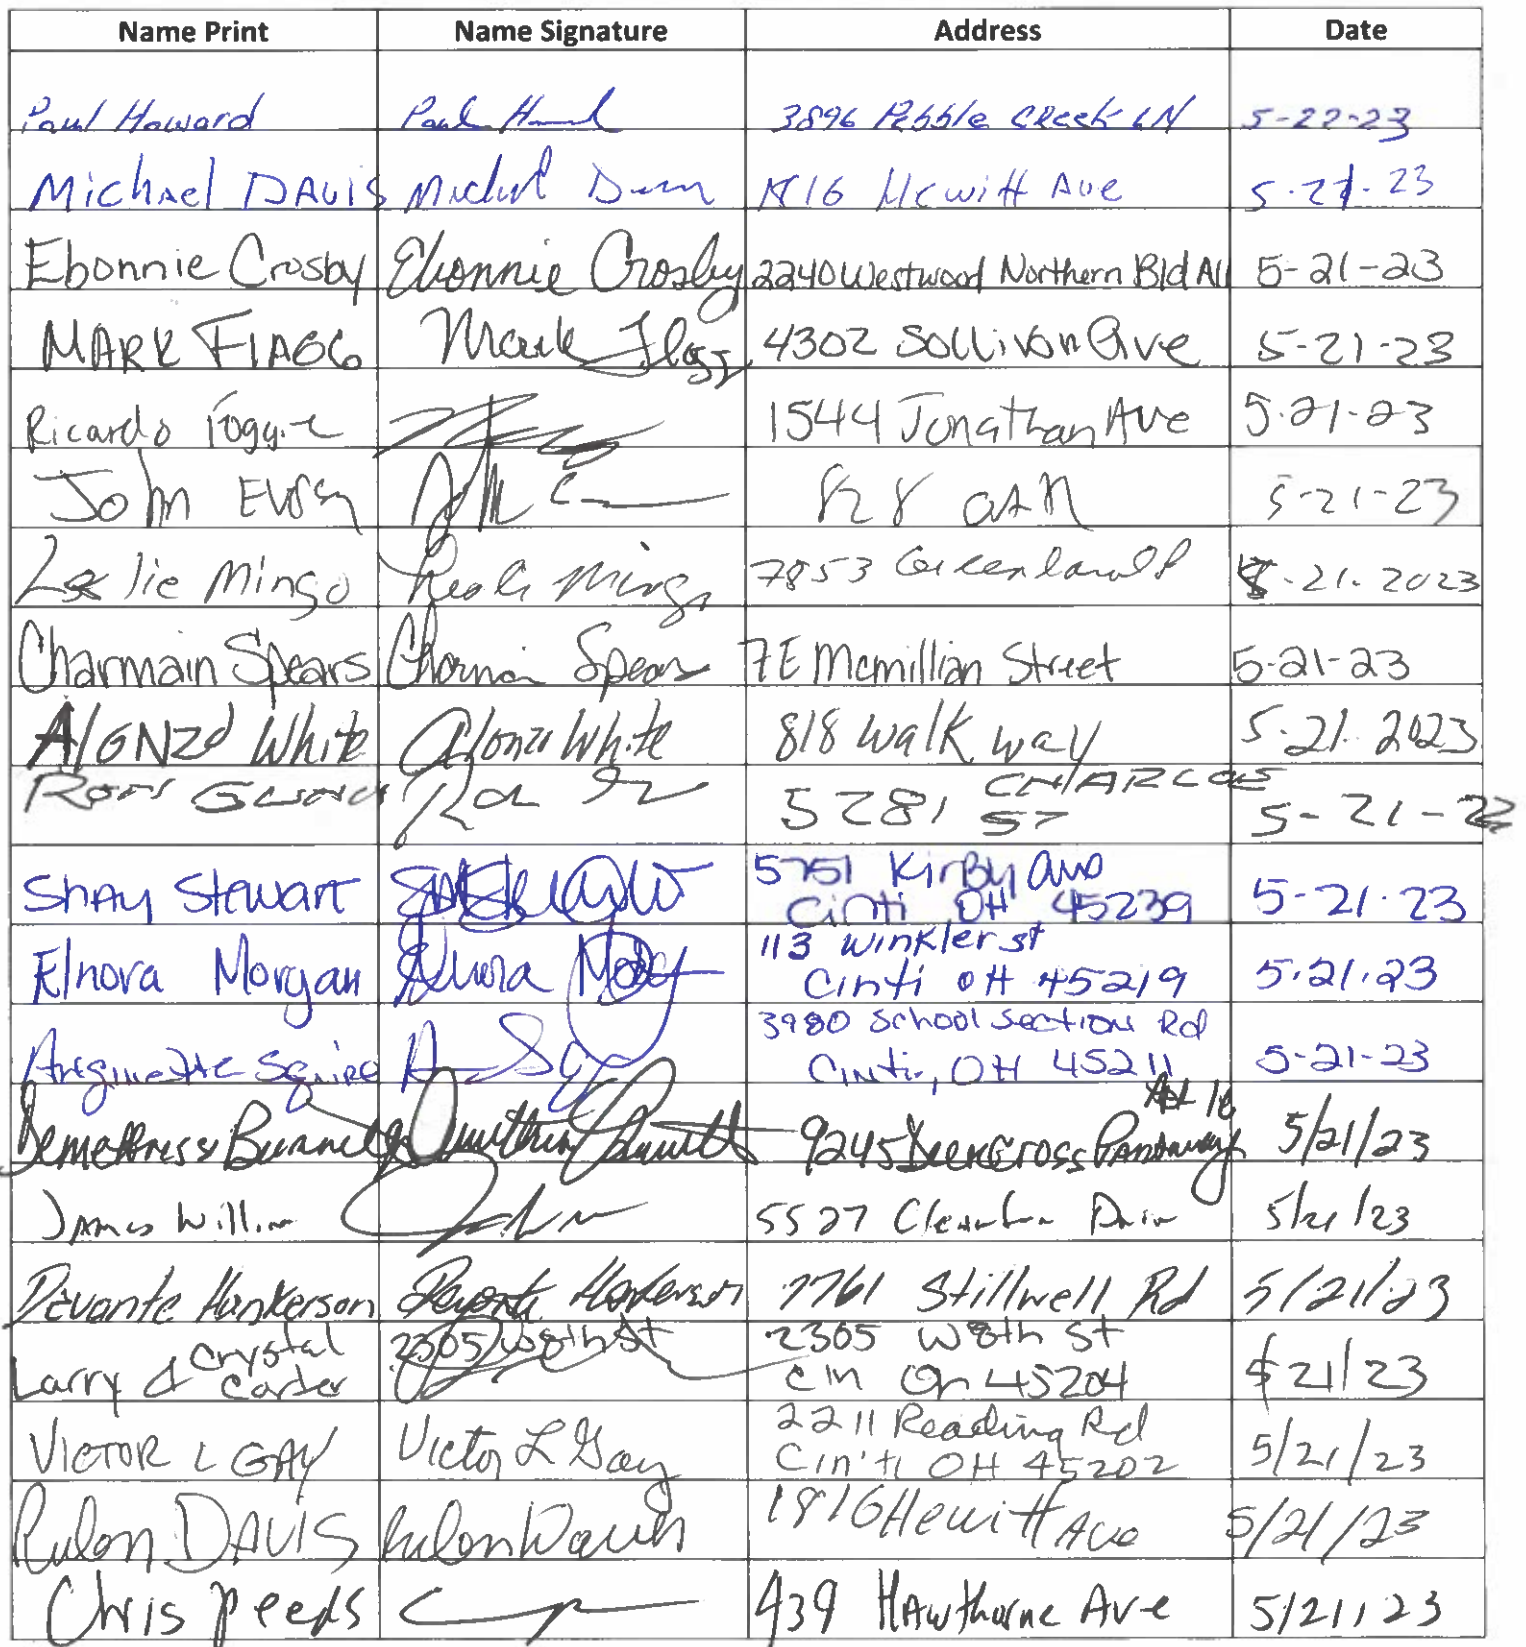 Name Print Name Signature Address Date
Paul Howard Paul H 3896 Pebble Creek LN 5-22-23
Michael DAVIS 1816 Hewitt Ave 5.21.23
Ebonnie Crosby Ebonnie Crosby 2240 Westwood Northern Bld 5-21-23
MARK FlAGG Mark Flagg 4302 Sollivan Ave 5-21-23
Ricardo 1544 Jonathan Ave 5-21-23
John 828 5-21-23
Leslie Mingo Mingo 7853 Greenland Pl 5-21-2023
Charmain Spears Spears 7 E Mcmillian Street 5-21-23
AlONZO White Alonzo White 818 walk way 5-21-2023
5281 CHARLOE
ST 5-21-22
Shay Stewart 5751 Kirby Ave
Cinti OH 45239 5-21-23
Elnora Morgan Elnora 113 Winkler st
Cinti OH 45219 5.21.23
Squire 3980 School Section Rd
Cinti, OH 45211 5-21-23
Apt 16
Burnett 9245 Deercross 5/21/23
JAMES 5527 5/21/23
Devante Hankerson Devante Hankerson 7761 Stillwell Rd 5/21/23
Crystal 2305 W8th St 2305 W8th St
Larry & Carter Cin Oh 45204 5 21/23
2211 Reading Rd
VICTOR L GAY Victor L Gay Cin'ti OH 45202 5/21/23
Rulon DAVIS Rulon Davis 1816 Hewitt Ave 5/21/23
Chris peeds 439 Hawthorne Ave 5/21/23